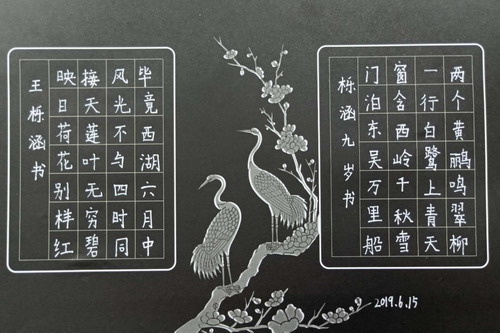 两个黄鹂鸣翠柳
一行白鹭上青天
窗含西岭千秋雪
门泊东吴万里船
栎涵九岁书
毕竟西湖六月中
风光不与四时同
接天莲叶无穷碧
映日荷花别样红
王栎涵书
2019.6.15